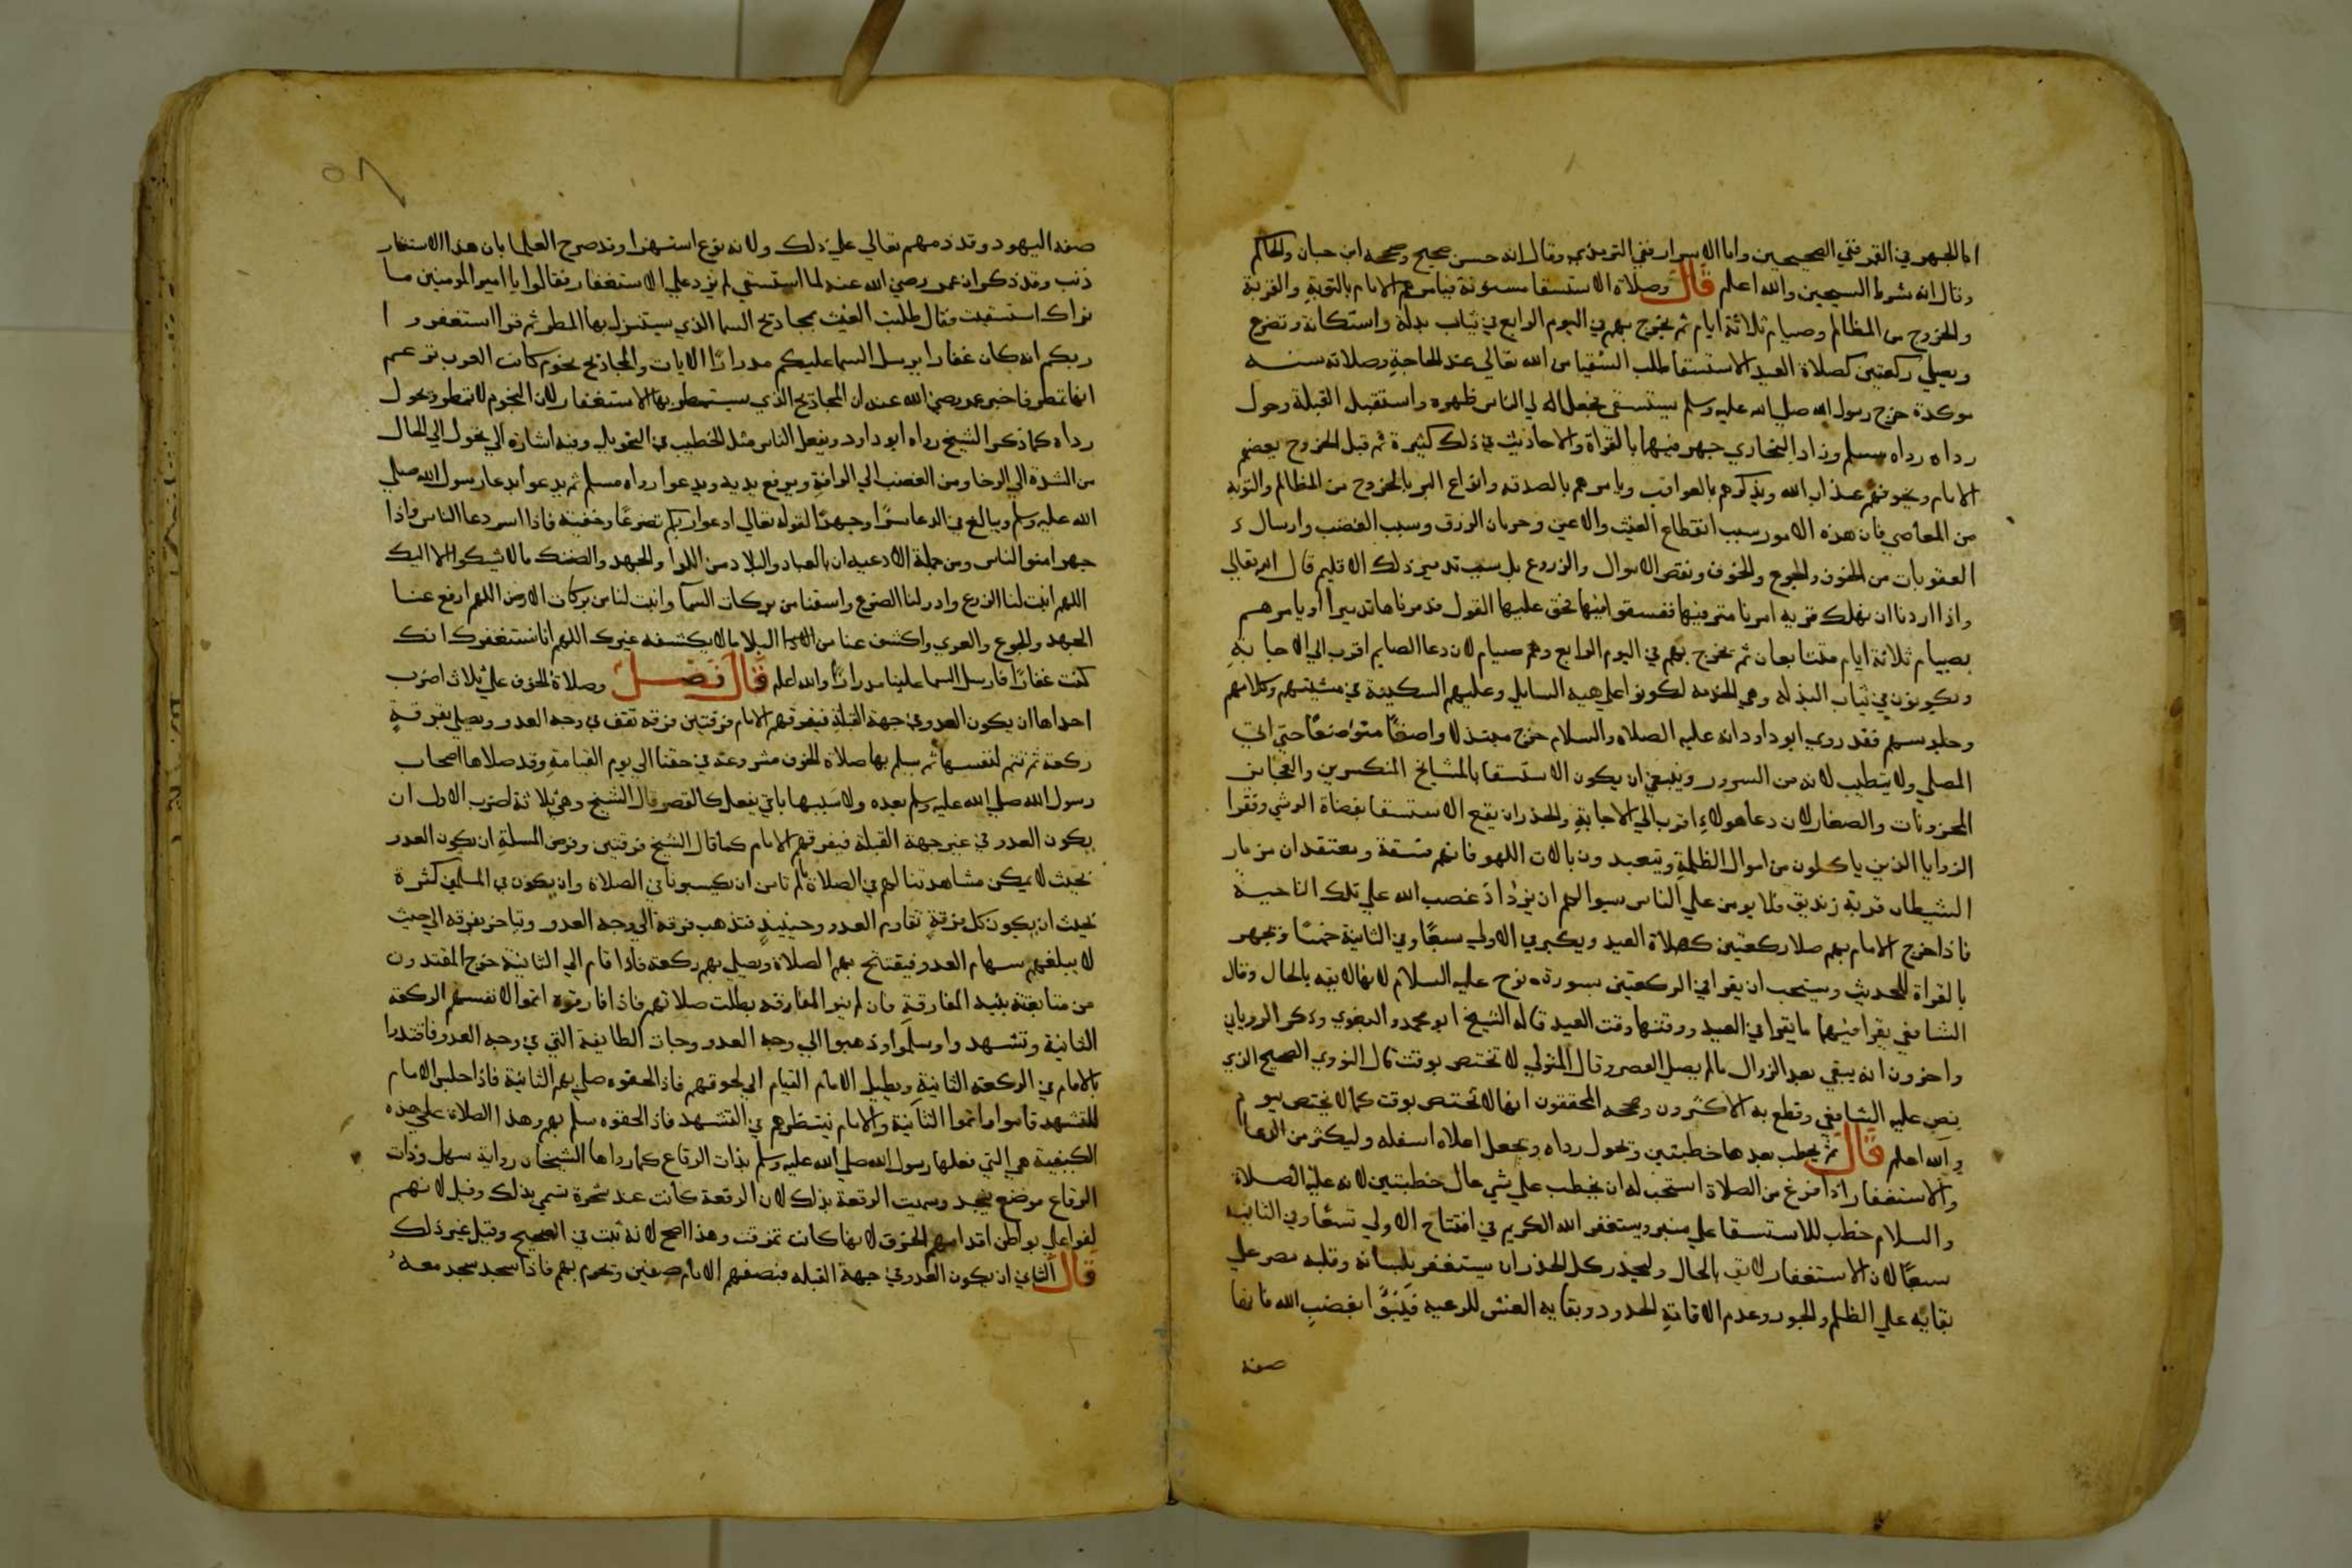 اما الجهر في القمر ففي الصحيحين واما الاسرار ففي الترمذي وقال انه حسن صحيح وصححه ابن حبان والحاكم
وقال انه شرط الشيخين والله اعلم قال وصلاة الاستسقا مسنونة فيامرهم الامام بالتوبة والقربة
والخروج من المظالم وصيام ثلاثة ايام ثم يخرج بهم في اليوم الرابع في ثياب بذلة واستكانة وتضرع
ويصلي ركعتين كصلاة العيد الاستسقا طلب السقيا من الله تعالي عند الحاجة وصلاته سنة
موكدة خرج رسول الله صلي الله عليه وسلم يستسقي فجعل الي الناس ظهره واستقبل القبلة وحول
رداه رواه مسلم وزاد البخاري جهر فيهما بالقراة والاحاديث في ذلك كثيرة ثم قبل الخروج يعضهم
الامام ويخوفهم عذاب الله ويذكرهم بالعواقب ويامرهم بالصدقه وانواع البر بالخروج من المظالم والتوبه
من المعاصي فان هذه الامور سبب انقطاع الغيث والاعين وحرمان الرزق وسبب الغضب وارسال
العقوبات من الخوف والجوع والخوف ونقص الاموال والزروع بل سبب تدمير ذلك الاقليم قال الله تعالي
واذا اردنا ان نهلك قريه امرنا مترفيها ففسقوا فيها فحق عليها القول فدمرناها تدميرا او يامرهم
بصيام ثلاثة ايام متتابعات ثم يخرج بهم في اليوم الرابع وهم صيام لان دعا الصايم اقرب الي الاجابة
ويكونون في ثياب البذله وهي الخدمه لكونوا علي هيه السايل وعليهم السكينة في مشيتهم وكلامهم
وجلوسهم فقد روي ابو داود انه عليه الصلاه والسلام خرج مبتذلا واضعا متواضعا حتي اتي
المصلي ولا يتطيب لانه من السرور وينبغي ان يكون الاستسقا بالمشايخ المنكسرين والعجايز
المحزونات والصغار لان دعا هولاء اقرب الي الاجابة والحذر ان يقع الاستسقا بقضاة الرشي وفقرا
الزوايا الذين ياكلون من اموال الظلمة ويتعبدون بالات اللهو فانهم فسقة ومعتقد ان مزمار
الشيطان قربة زنديق فلا يومن علي الناس بسوالهم ان يزداد غضب الله علي تلك الناحية
فاذا خرج الامام بهم صلا ركعتين كصلاة العيد ويكبر في الاولي سبعا وفي الثانية خمسا ويجهر
بالقراة للحديث ويستحب ان يقرا في الركعتين بسورة نوح عليه السلام لانها لايقه بالحال وقال
الشافعي يقرا فيهما ما يقرا في العيد ووقتها وقت العيد قاله الشيخ ابو محمد والبغوي وذكر الروياني
واخرون انه يبقي بعد الزوال مالم يصل العصر وقال المتولي لا تختص بوقت قال النووي الصحيح الذي
نص عليه الشافعي وقطع به الاكثرون وصححه المحققون انها لا تختص بوقت كما لا يختص بيوم
والله اعلم قال ثم يخطب بعدها خطبتين ويحول رداه ويجعل اعلاه اسفله وليكثر من الدعا
والاستغفار اذا فرغ من الصلاة استحب له ان يخطب علي شي عال خطبتين لانه عليه الصلاة
والسلام خطب للاستسقا علي منبر ويستغفر الله الكريم في افتتاح الاولي تسعا وفي الثانية
سبعا لان الاستغفار لايق بالحال وليحذر كل الحذر ان يستغفر بلسانه وقلبه مصر علي
بقايه علي الظلم والجور وعدم الاقامة الحدود وبقايه الغش للرعيه فيبوا بغضب الله فانها
صفة
٥٨
صفة اليهود وقد ذمهم تعالي علي ذلك ولانه نوع استهزا وقد صرح العلما بان هذا الاستغفار
ذنب وقد ذكر ان عمر رضي الله عنه لما استسقي لم يزد علي الاستغفار فقالوا يا امير المومنين ما
نراك استسقيت فقال طلبت الغيث بمجاديح السما الذي يستنزل بها المطر ثم قرا استغفروا
ربكم انه كان غفارا يرسل السما عليكم مدرارا الايات والمجاديح نجوم كانت العرب تزعم
انها تمطر فاخبر عمر رضي الله عنه ان المجاديح الذي يستمطر بها الاستغفار لان النجوم لا تمطر ويحول
رداه كما ذكر الشيخ رواه ابو داود ويفعل الناس مثل الخطيب في التحويل وفيه اشارة الي تحول الي الحال
من الشدة الي الرخا ومن الغضب الي الرافة ويرفع يديه ويدعوا رواه مسلم ثم يدعوا بدعا رسول الله صلي
الله عليه وسلم ويبالغ في الدعا سرا وجهرا لقوله تعالي ادعوا ربكم تضرعا وخفية فاذا اسر دعا الناس واذا
جهر امنوا الناس ومن جملة الادعيه ان بالعباد والبلاد من اللاوا والجهد والضنك مالا يشكوا الا اليك
اللهم انبت لنا الزرع وادر لنا الضرع واسقنا من بركات السما وانبت لنا من بركات الارض اللهم ارفع عنا
الجهد والجوع والعري واكشف عنا من البلا مالا يكشفه غيرك اللهم انا نستغفرك انك
كنت غفارا فارسل السما علينا مدرارا والله اعلم قال فصل وصلاة الخوف علي ثلاث اضرب
احداها ان يكون العدو في جهة القبلة فيفرقهم الامام فرقتين فرقه تقف في وجه العدو ويصلي بفرقة
ركعة ثم تتم لنفسها ثم يسلم بها صلاة الخوف مشروعة في حقنا الي يوم القيامة وقد صلاها اصحاب
رسول الله صلي الله عليه وسلم بعده ولان سببها باق يفعل كالقصر قال الشيخ وهي ثلاثة اضرب الاول ان
يكون العدو في غير جهة القبلة فيفرقهم الامام كما قال الشيخ فرقتين وفرض المسلة ان يكون العدو
بحيث لا يمكن مشاهدتنا لهم في الصلاة لم نامن ان يكبسونا في الصلاة وان يكون في المسلمين كثرة
بحيث ان يكون كل فرقة تقاوم العدو وحينيذ فتذهب فرقة الي وجه العدو ويتاخر بفرقه الي حيث
لا يبلغهم سهام العدو فيفتتح بهم الصلاة ويصلي بهم ركعة فاذا قام الي الثانية خرج المقتدون
من متابعته بنية المفارقة فان لم ينوا المفارقه بطلت صلاتهم فاذا فارقوه اتموا لانفسهم الركعة
الثانية وتشهدوا وسلموا وذهبوا الي وجه العدو وجات الطايفة التي في وجه العدو فاقتدوا
بالامام في الركعة الثانية ويطيل الامام القيام الي لحوقهم فاذا لحقوه صلي بهم الثانية فاذا جلس الامام
للتشهد قاموا واتموا الثانية والامام ينتظرهم في التشهد فاذا لحقوه سلم بهم وهذا الصلاة علي هذه
الكيفية هي التي فعلها رسول الله صلي الله عليه وسلم بذات الرقاع كما رواها الشيخان رواية سهل وذات
الرقاع موضع بنجد وسميت الرقعة بذلك لان الرقعة كانت عند شجرة تسمي بذلك وقيل لانهم
لفوا علي بواطن اقدامهم الخرق لانها كانت تمزقت وهذا اصح لانه ثبت في الصحيح وقيل غير ذلك
قال الثاني ان يكون العدو في جهة القبله فيصفهم الامام صفين ويحرم بهم فاذا سجد سجد معه